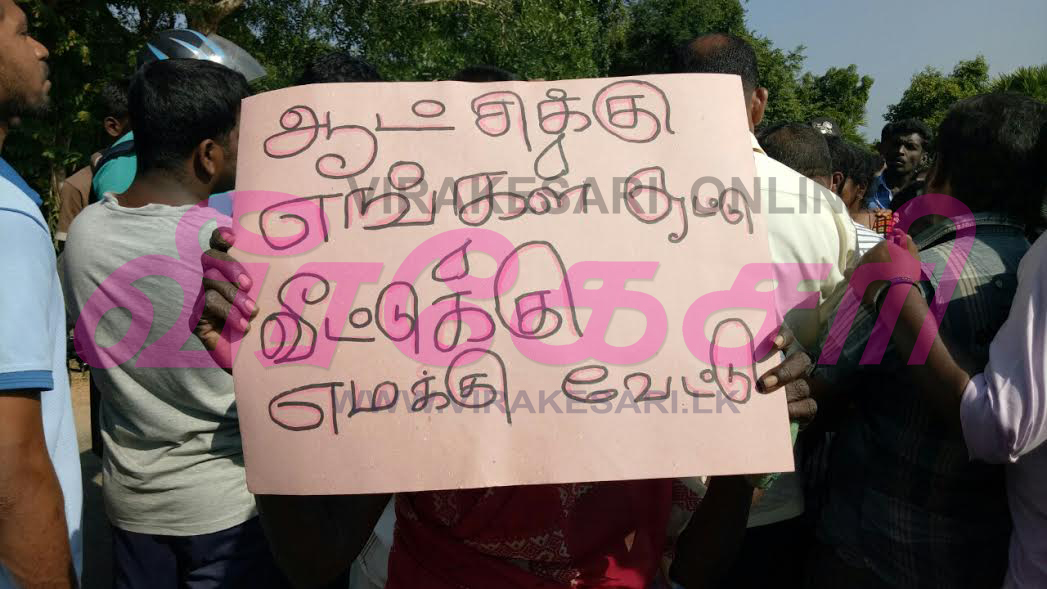 ஆட் சிக்கு
எங்கள்
VIRAKESARI ONLINE
வீரகேசரி
வீட்டுக்கு
எமக்கு வேட்டு
WWW.VIRAKESARI.LK